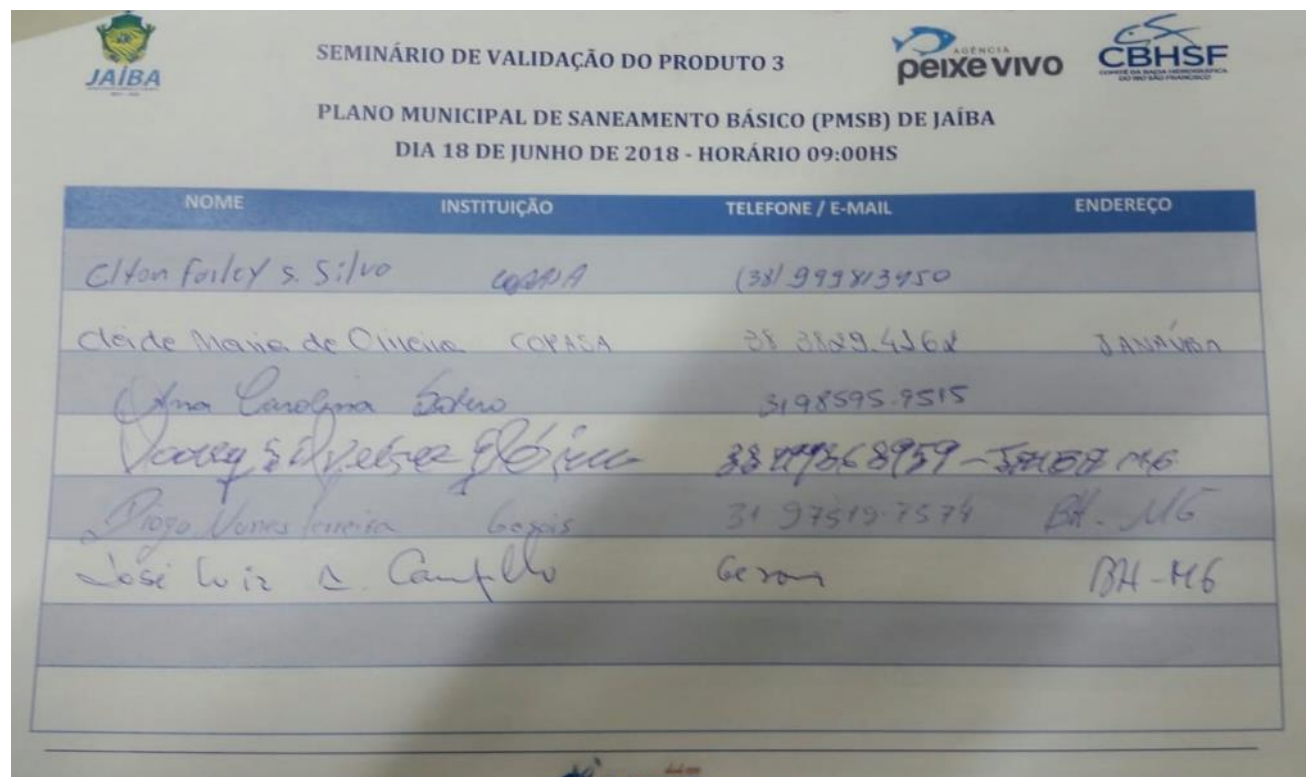 JAÍBA
SEMINÁRIO DE VALIDAÇÃO DO PRODUTO 3
AGÊNCIA
peixe vivo
CBHSF
COMITÊ DA BACIA HIDROGRÁFICA
DO RIO SÃO FRANCISCO
PLANO MUNICIPAL DE SANEAMENTO BÁSICO (PMSB) DE JAÍBA
DIA 18 DE JUNHO DE 2018 - HORÁRIO 09:00HS
NOME INSTITUIÇÃO TELEFONE / E-MAIL ENDEREÇO
Clton Farley S. Silva (38) 999813450
Cleide Maria de Oliveira COPASA 38 3829.4162 JANAÚBA
Ana Carolina Sotero 31 98595-9515
Silvestre
Diogo Nunes Ferreira 31 97519-7574 BH - MG
José Luiz A. Campello BH - MG